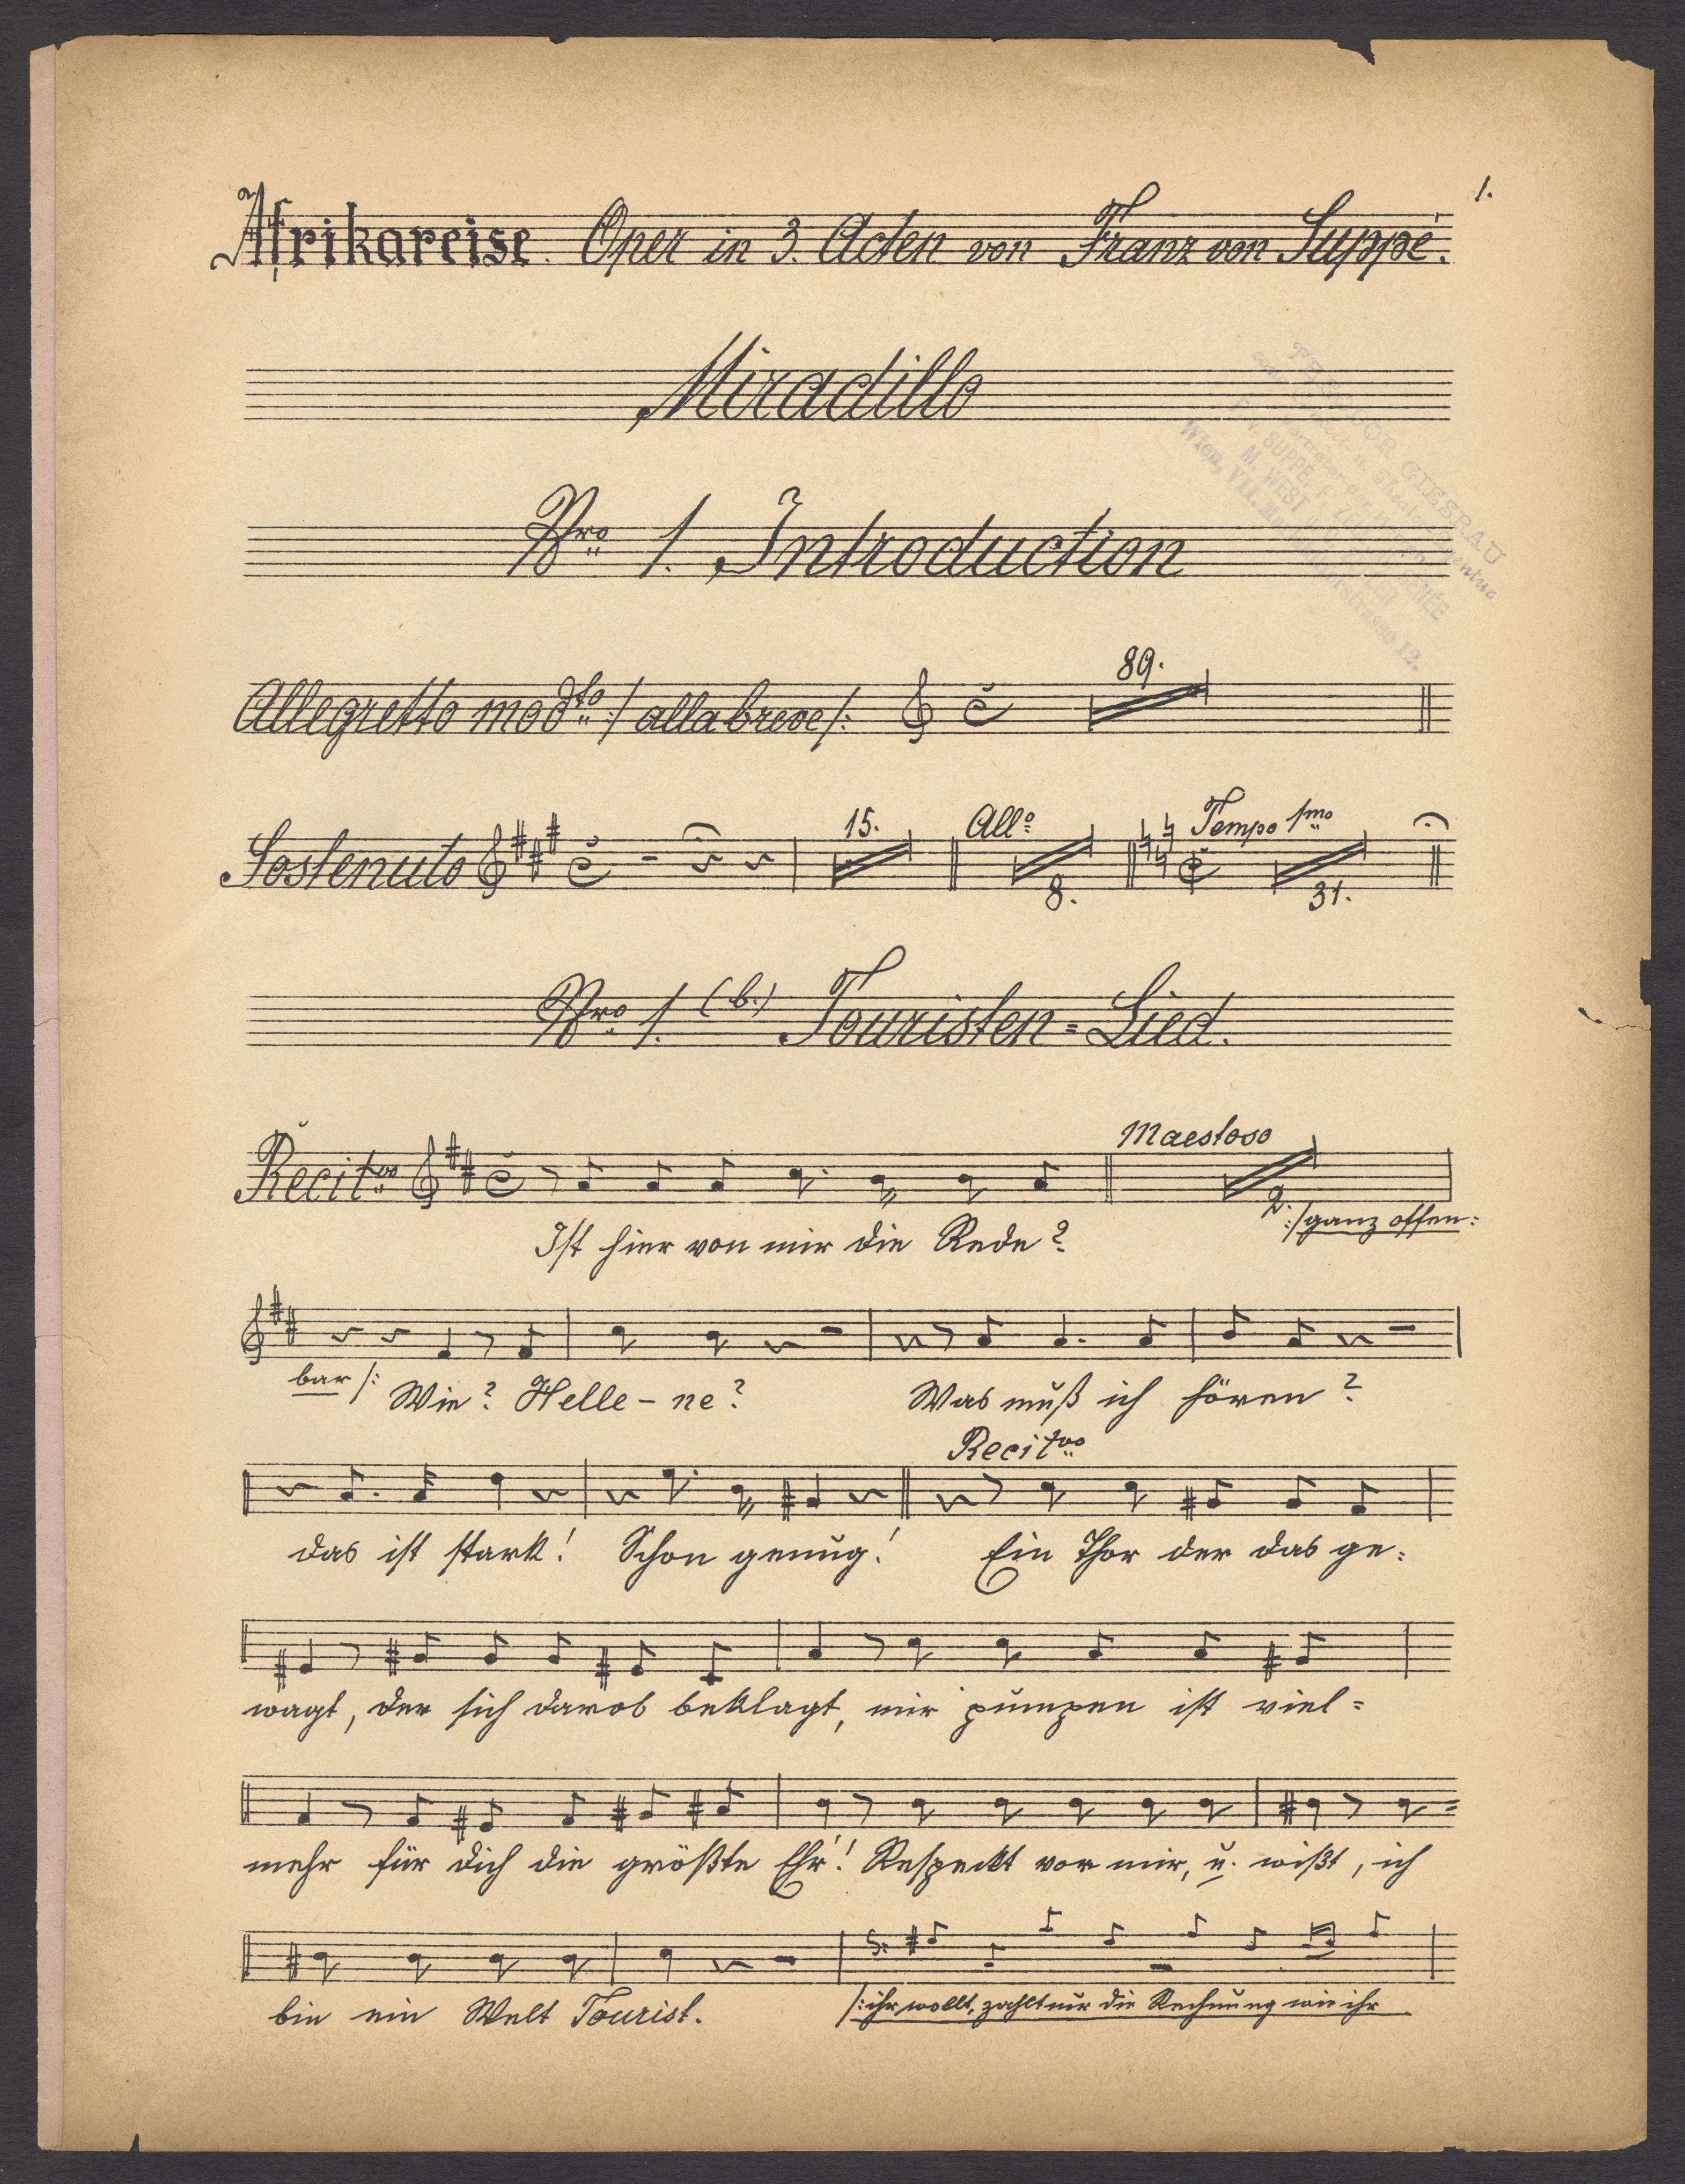 1.
Afrikareise. Oper in 3. Acten von Franz von Suppé.
Miradillo
Nro 1. Introduction
THEODOR GIESRAU
F. v. SUPPÉ, F. GENÉE
M. WEST
Wien, VII. 12.
89.
Allegretto modto :/ alla breve /:
15. Allo Tempo 1mo
Sostenuto
8. 31.
Nro 1. (b.) Touristen=Lied.
Maestoso
Recitvo
2. :/ganz offen:
Ist hier von mir die Rede?
bar /: Wie? Helle-ne? Was muß ich hören?
Recitvo
das ist stark! Schon genug! Ein Thor der das ge:
wagt, der sich darob beklagt, mir pumpen ist viel=
mehr für dich die größte Ehr'! Respekt vor mir, u. wißt, ich
bin ein Welt Tourist. /: ihr wollt, zahlt nur die Rechnung wie ihr